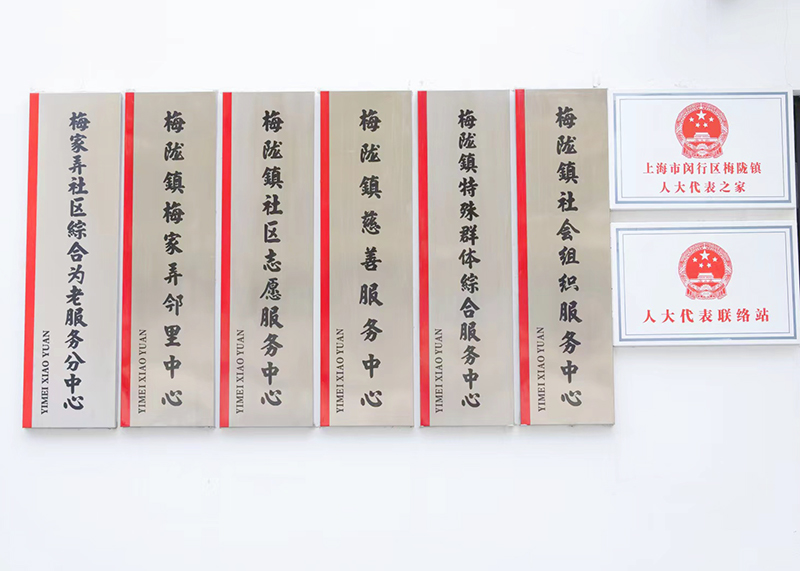 梅家弄社区綜合为老服务分中心
YIMEI XIAO YUAN
梅陇鎮梅家弄邻里中心
YIMEI XIAO YUAN
梅陇鎮社区志愿服务中心
YIMEI XIAO YUAN
梅陇鎮慈善服务中心
YIMEI XIAO YUAN
梅陇鎮特殊群体綜合服务中心
YIMEI XIAO YUAN
梅陇鎮社会组织服务中心
YIMEI XIAO YUAN
上海市闵行区梅陇镇
人大代表之家
人大代表联络站